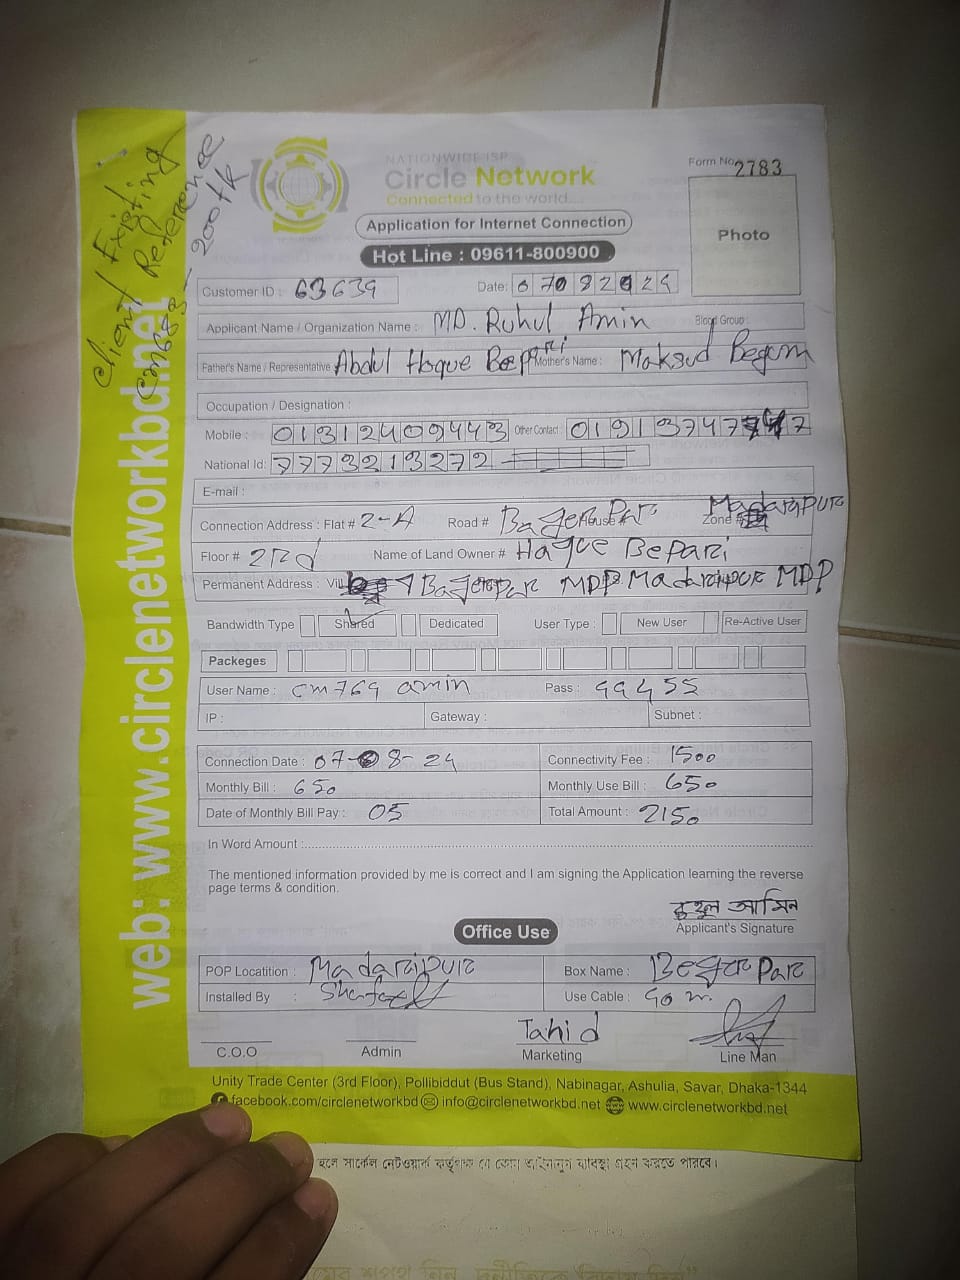 NATIONWIDE ISP
Circle Network
Connected to the world....
Form No. 2783
Photo
Application for Internet Connection
Hot Line : 09611-800900
Client Existing
Reference
200tk
web: www.circlenetworkbd.net
Customer ID : 63639
Date:
Applicant Name / Organization Name : MD. Ruhul Amin Blood Group :
Father's Name / Representative : Abdul Hoque Bepari Mother's Name : Maksud Begum
Occupation / Designation :
Mobile : 01312409443 Other Contact : 
National Id: 7773213272
E-mail :
Connection Address : Flat # 2-A Road # Bagerpar House # Zone # Madaripur
Floor # 2nd Name of Land Owner # Haque Bepari
Permanent Address : Vill Bagerpar MDP Madaripur MDP
Bandwidth Type Shared Dedicated User Type : New User Re-Active User
Packeges
User Name : cm769 amin Pass : 99455
IP : Gateway : Subnet :
Connection Date : 07-08-24 Connectivity Fee : 1500
Monthly Bill : 650 Monthly Use Bill : 650
Date of Monthly Bill Pay : 05 Total Amount : 2150
In Word Amount :
The mentioned information provided by me is correct and I am signing the Application learning the reverse
page terms & condition.
রুহুল আমিন
Applicant's Signature
Office Use
POP Locatition : Madaripur Box Name : Beger Par
Installed By : Use Cable : 90 m.
Tahid
C.O.O Admin Marketing Line Man
Unity Trade Center (3rd Floor), Pollibiddut (Bus Stand), Nabinagar, Ashulia, Savar, Dhaka-1344
facebook.com/circlenetworkbd info@circlenetworkbd.net www.circlenetworkbd.net
হলে সার্কেল নেটওয়ার্ক কর্তৃপক্ষ যে কোন আইনানুগ ব্যবস্থা গ্রহন করতে পারবে।